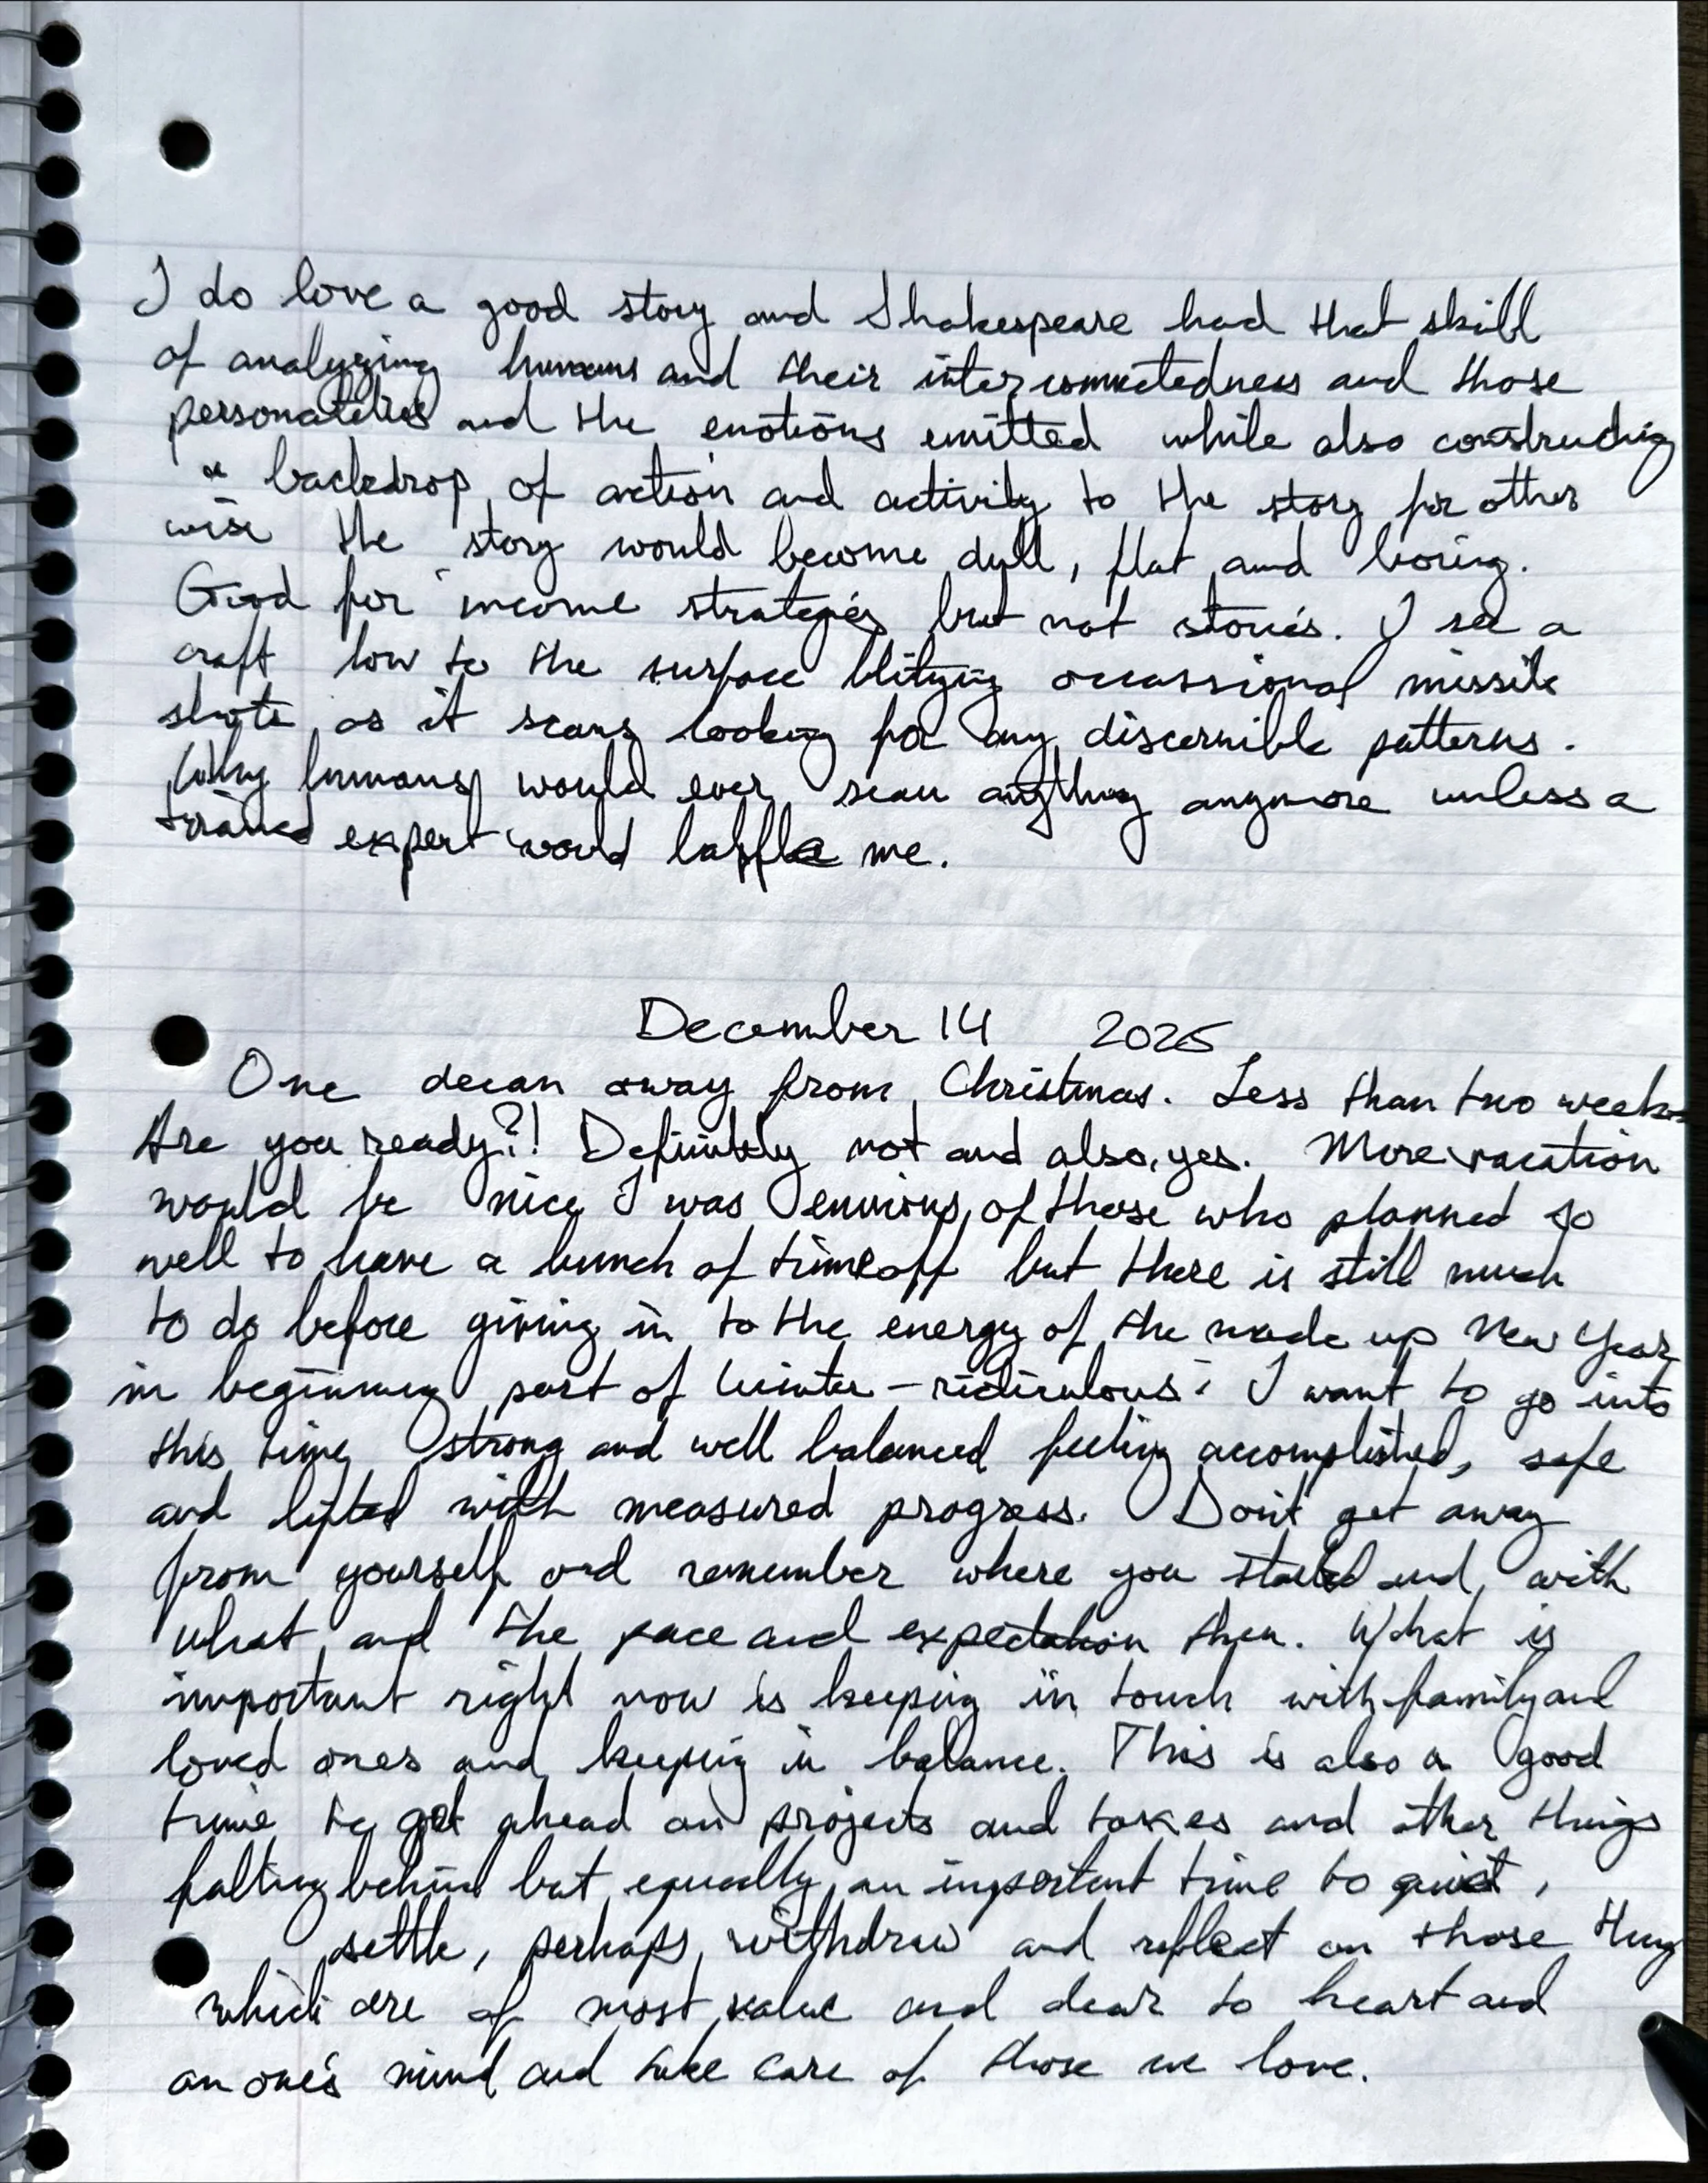 I do love a good story and Shakespeare had that skill
of analyzing humans and their interconnectedness and those
personalities and the emotions emitted while also constructing
a backdrop of action and activity to the story for other
wise the story would become dull, flat and boring.
Good for income strategies but not stories. I see a
craft low to the surface blitzing occassional missile
shots as it scans looking for any discernible patterns.
Why humans would ever scan anything anymore unless a
trained expert would baffle me.
December 14 2025
One decan away from Christmas. Less than two weeks
Are you ready?! Definitely not and also, yes. More vacation
would be nice I was envious of those who planned so
well to have a bunch of time off but there is still much
to do before giving in to the energy of the made up New Year
in beginning part of Winter - ridiculous! I want to go into
this time strong and well balanced feeling accomplished, safe
and lifted with measured progress. Don't get away
from yourself and remember where you started and with
what and the pace and expectation then. What is
important right now is keeping in touch with family and
loved ones and keeping in balance. This is also a good
time to get ahead on projects and taxes and other things
falling behind but equally an important time to quiet,
settle, perhaps withdraw and reflect on those
which are of most value and dear to heart and
on one's mind and take care of those we love.